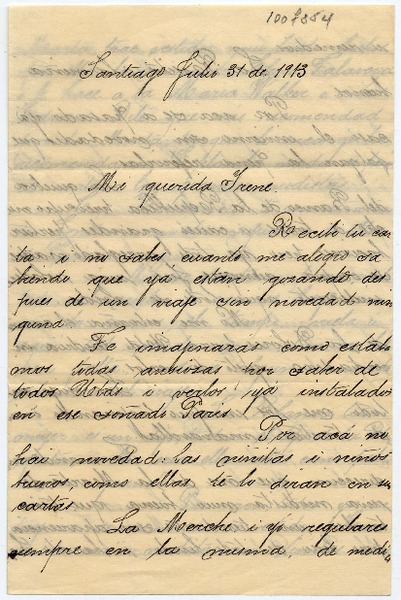 1007854
Santiago Julio 31 de 1913
Mi querida Irene
Recibi tu car
ta i no sabes cuanto me alegro sa
biendo que ya están gozando des
pues de un viaje sin novedad nin
guna
Te imajinaras como estab
mos todas ansiozas por saber de
todos Utds i verlos ya instalados
en ese soñado Paris
Por acá no
hai novedad: las niñitas i niños
buenos, como ellas te lo diran en su
cartas
La Merche i yó regulares
siempre en la misma, de medi